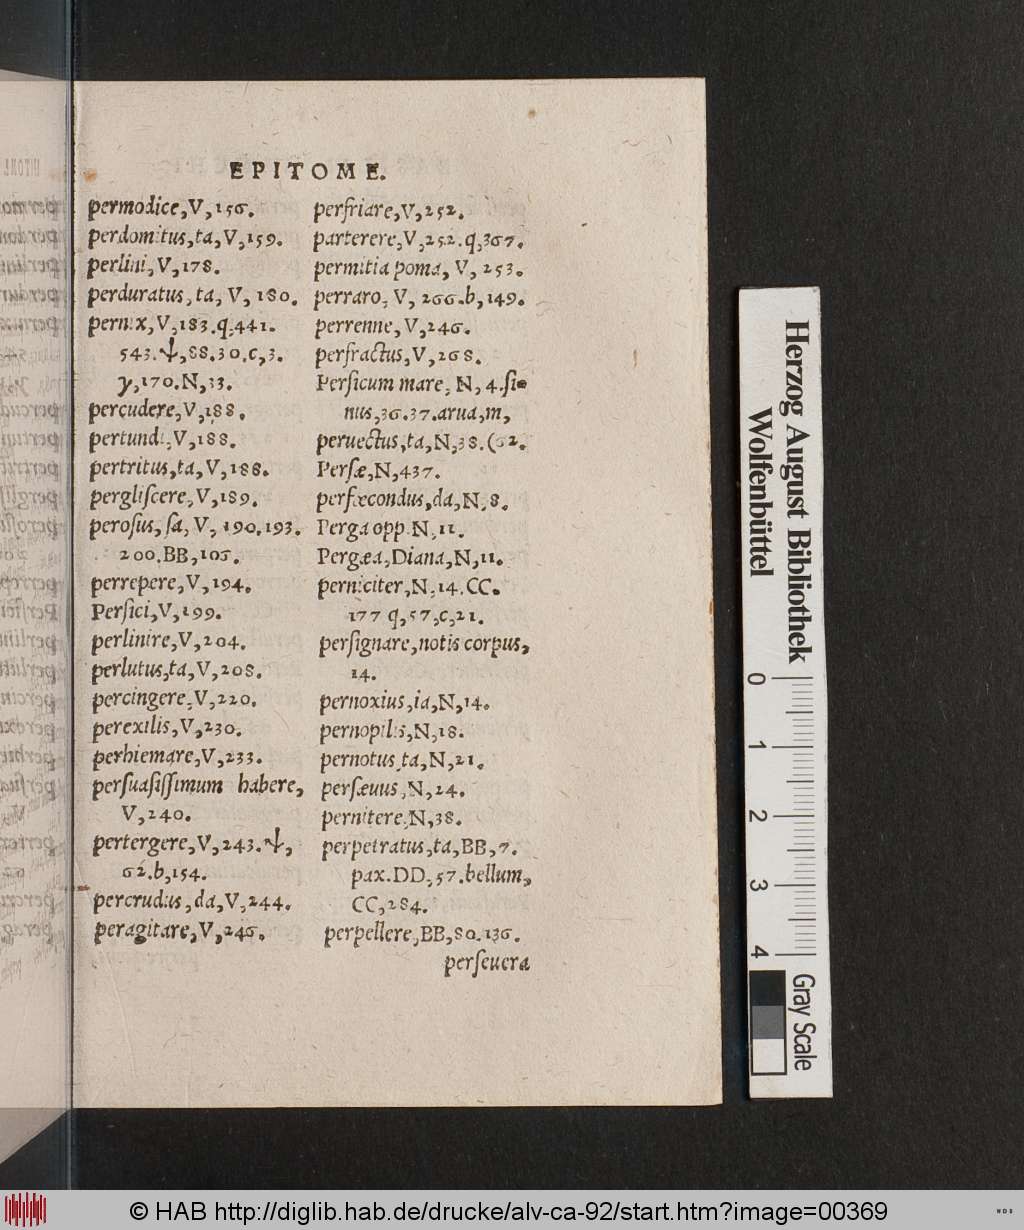 EPITOME.
permodice,V,156.
perdomitus,ta,V,159.
perlini,V,178.
perduratus,ta, V, 180.
pernix,V,183.q,441.
543.ψ,88.30.c,3.
γ,170.N,33.
percudere,V,188.
pertundi,V,188.
pertritus,ta,V,188.
pergliſcere,V,189.
peroſus,ſa, V, 190.193.
200.BB,105.
perrepere,V,194.
Perſici,V,199.
perlinire,V,204.
perlutus,ta,V,208.
percingere,V,220.
perexilis,V,230.
perhiemare,V,233.
perſuaſiſſimum habere,
V,240.
pertergere,V,243.ψ,
62.b,154.
percrudus,da,V,244.
peragitare,V,246.
perfriare,V,252.
parterere,V,252.q,367.
permitia poma, V, 253.
perraro, V, 266.b,149.
perrenne,V,246.
perfractus,V,268.
Perſicum mare, N, 4.ſi-
nus,36.37.arua,m,
peruectus,ta,N,38.(62.
Perſæ,N,437.
perfæcondus,da,N,8.
Perga opp.N,11.
Pergæa,Diana,N,11.
perniciter,N,14.CC.
177 q,57,c,21.
perſignare,notis corpus,
14.
pernoxius,ia,N,14.
pernopilis,N,18.
pernotus,ta,N,21.
perſæuus,N,24.
pernitere,N,38.
perpetratus,ta,BB,7.
pax.DD,57.bellum,
CC,284.
perpellere,BB,80.136.
perſeuera
Herzog August Bibliothek
Wolfenbüttel
0 1 2 3 4
Gray Scale
© HAB http://diglib.hab.de/drucke/alv-ca-92/start.htm?image=00369